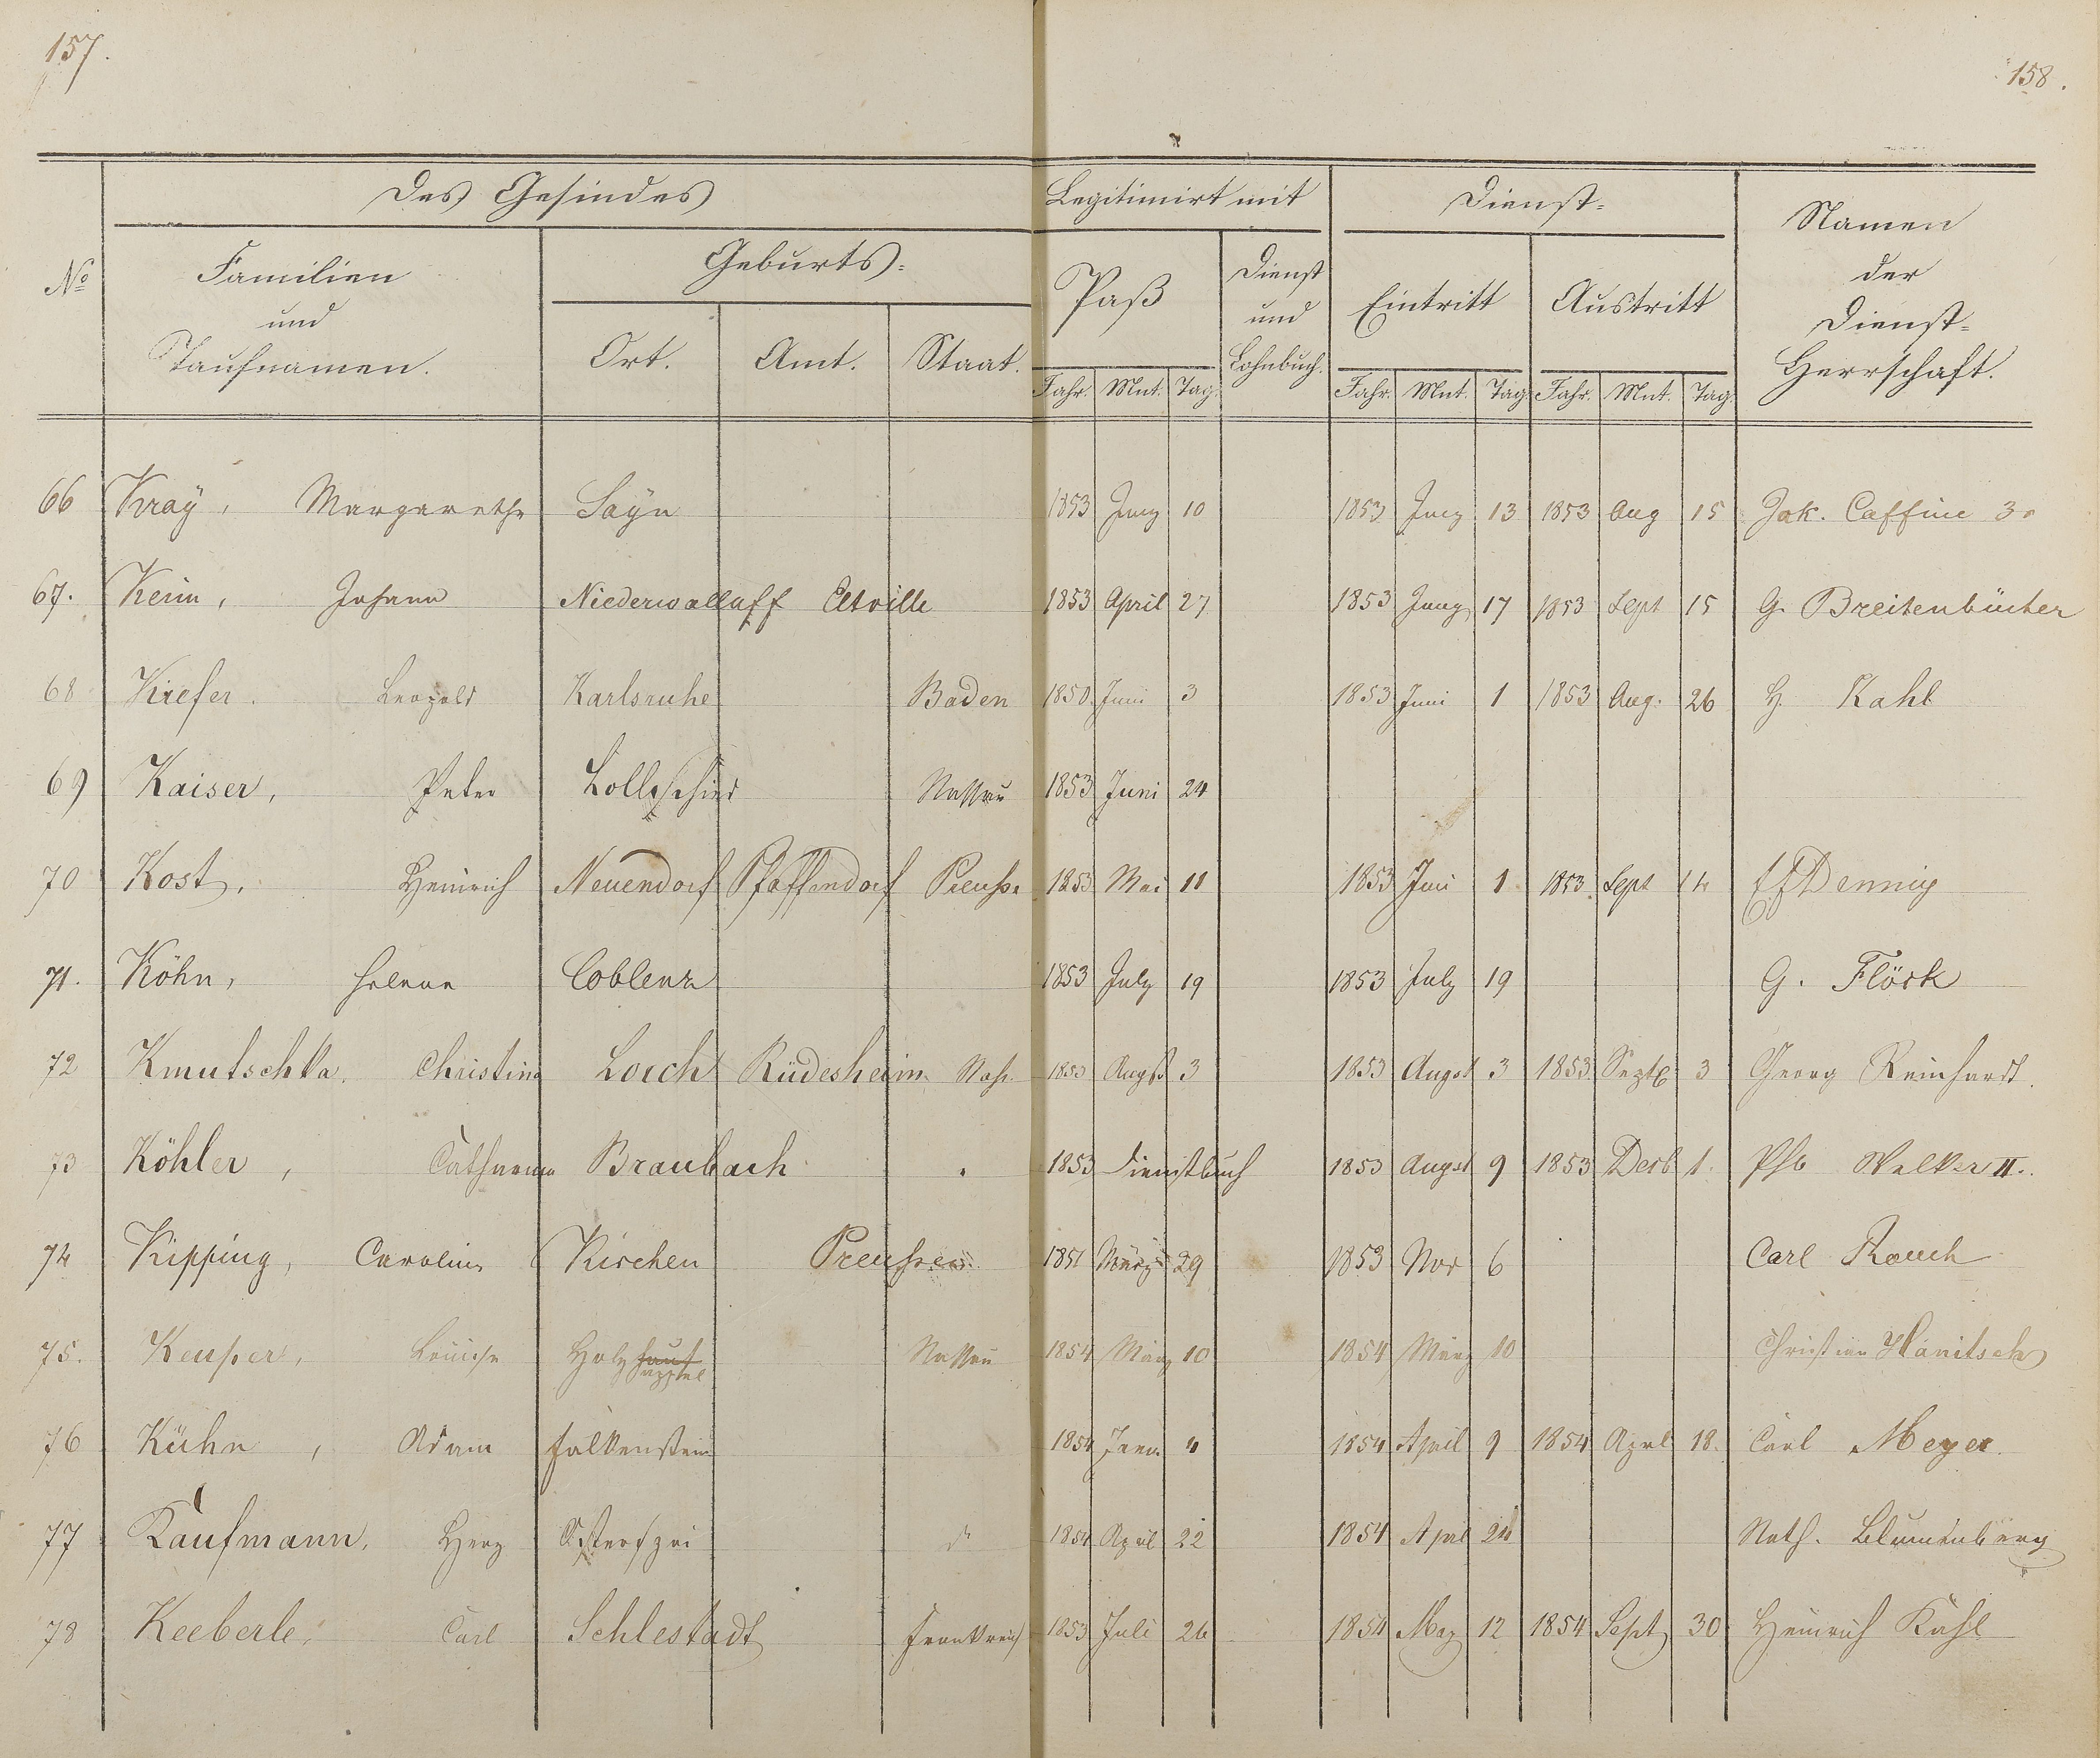 157.
158.
Des Gesindes
Legitimirt mit
Dienst-
Namen
der
Dienst-
Herrschaft.
No
Familien
und
Taufnamen.
Geburts-
Paß
Dienst
und
Lohnbuch.
Eintritt
Austritt
Ort. Amt. Staat.
Jahr. Mnt. Tag. Jahr. Mnt. Tag. Jahr. Mnt. Tag.
66 Kray, Margarethe Sayn 1853 Juny 10 1853 Juny 13 1853 Aug 15 Jak. Caffine
67. Johann Niederwalluff Eltville 1853 April 27 1853 Juny 17 1853 Sept 15 G. Breitenbücher
68 Kiefer. Leopold Karlsruhe Baden 1850. Juni 3 1853 Juni 1 1853 Aug. 26 H. Kahl
69 Kaiser, Peter Lollschied Nassau 1853 Juni 24
70 Kost, Heinrich Neuendorf Pfaffendorf 1853 Mai 11 1853 Juni 1 1853 Sept 14 Dennig
71. Köhn, Helene Coblenz 1853 July 19 1853 July 19 G. Flöck
72 Kmutschka. Christina Lorch Rüdesheim Nass. 1853 Augst 3 1853 Augst 3 1853 Septb 3 Georg Reinhardt.
73 Köhler, Catharina Braubach " 1853 Dienstbuch 1853 Augst 9 1853 Decb 1. Phil. Welker II.
74 Kipping, Caroline Kirchen Preußen 1851 März 29 1853 Nov 6 Carl Rauch
75. Keuper, Louise Holzhaus
appel Nassau 1854 März 10 1854 März 10 Christian Hänitsch
76 Kühn, Adam Falkenstein 1854 Janu 4 1854 April 9 1854 Aprl 18. Carl Meyer.
77 Kaufmann, Herz Osterspai d 1854 April 22 1854 Aprl 24 Nath. Blumenberg
78 Keeberle, Carl Schlestadt Frankreich 1853 Juli 26 1854 May 12 1854 Sept 30 Heinrich Kahl